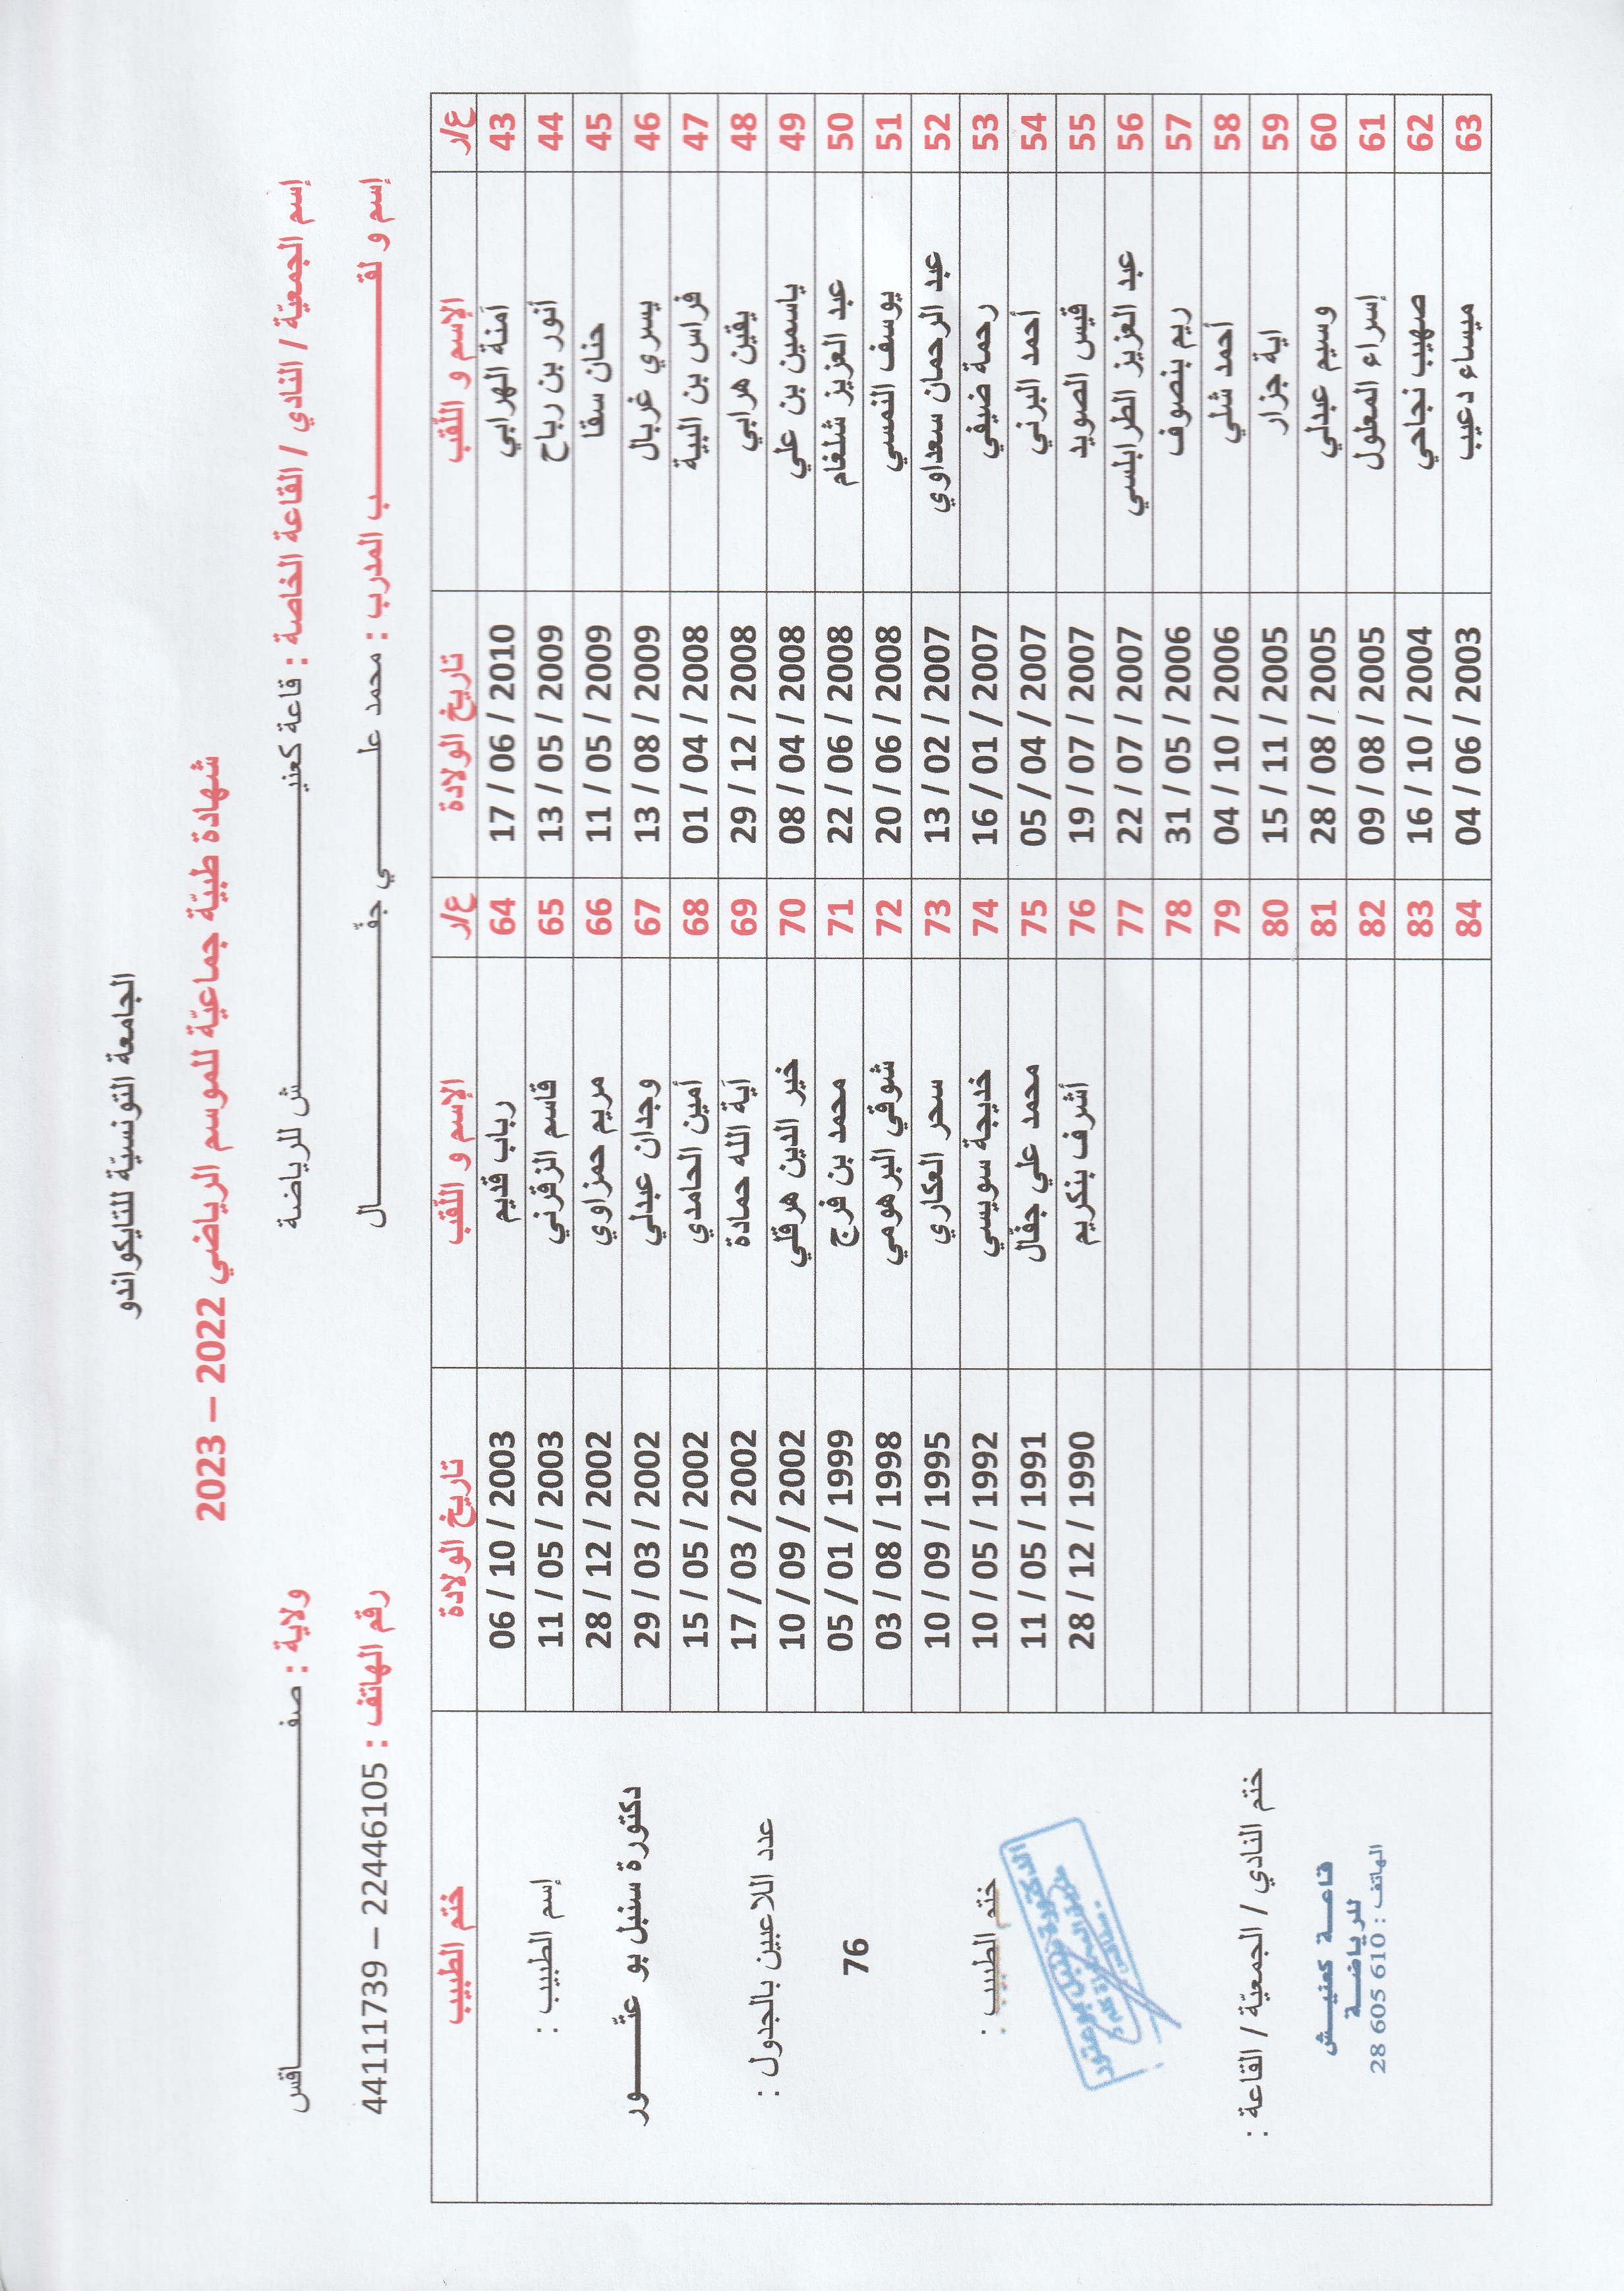 الجامعة التونسيّة للتايكواندو
شهادة طبيّة جماعيّة للموسم الرياضي 2022 – 2023
إسم الجمعيّة / النادي / القاعة الخاصة : قاعة كعنيـــــــش للرياضة ولاية : صفـــــــاقس
إسم و لقـــــــب المدرب : محمد علـــــــي جفّـــــــال رقم الهاتف : 22446105 – 44111739
ع/ر الإسم و اللّقب تاريخ الولادة ع/ر الإسم و اللّقب تاريخ الولادة ختم الطبيب
43 آمنة الهرابي 17 / 06 / 2010 64 رباب قديم 06 / 10 / 2003
44 أنور بن رباح 13 / 05 / 2009 65 قاسم الزقرني 11 / 05 / 2003
45 حنان سقا 11 / 05 / 2009 66 مريم حمزاوي 28 / 12 / 2002
46 يسري غربال 13 / 08 / 2009 67 وجدان عبدلي 29 / 03 / 2002
47 فراس بن البية 01 / 04 / 2008 68 أمين الحامدي 15 / 05 / 2002
48 يقين هرابي 29 / 12 / 2008 69 آية الله حمادة 17 / 03 / 2002
49 ياسمين بن علي 08 / 04 / 2008 70 خير الدين هرقلي 10 / 09 / 2002
50 عبد العزيز شلغام 22 / 06 / 2008 71 محمد بن فرج 05 / 01 / 1999
51 يوسف النمسي 20 / 06 / 2008 72 شوقي البرهومي 03 / 08 / 1998
52 عبد الرحمان سعداوي 13 / 02 / 2007 73 سحر العكاري 10 / 09 / 1995
53 رحمة ضيفي 16 / 01 / 2007 74 خديجة سويسي 10 / 05 / 1992
54 أحمد البرني 05 / 04 / 2007 75 محمد علي جفّال 11 / 05 / 1991
55 قيس الصويد 19 / 07 / 2007 76 أشرف بنكريم 28 / 12 / 1990
56 عبد العزيز الطرابلسي 22 / 07 / 2007 77
57 ريم بنصوف 31 / 05 / 2006 78
58 أحمد شلي 04 / 10 / 2006 79
59 اية جزار 15 / 11 / 2005 80
60 وسيم عبدلي 28 / 08 / 2005 81
61 إسراء المعلول 09 / 08 / 2005 82
62 صهيب نجاحي 16 / 10 / 2004 83
63 ميساء دعيب 04 / 06 / 2003 84
إسم الطبيب :
دكتورة سنبل بو عتّـــــور
عدد اللاعبين بالجدول :
76
ختم الطبيب :
ختم النادي / الجمعيّة / القاعة :
قاعـــة كعنيـــش
للرياضـــة
الهاتف : 610 605 28